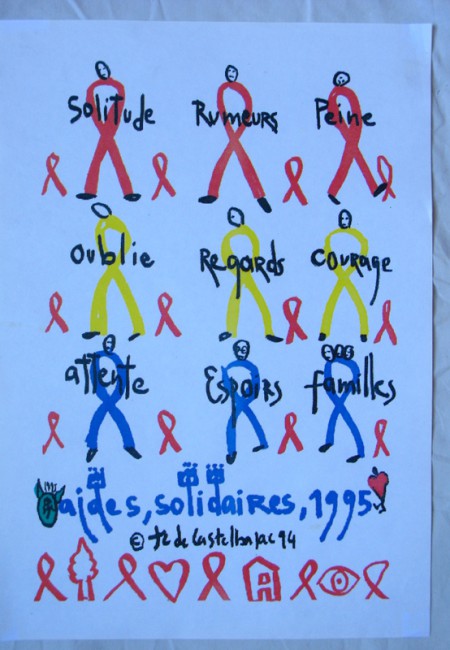 Solitude Rumeurs Peine
oublie Regards courage
attente Espoirs familles
aides, solidaires, 1995
© JC de Castelbajac 94